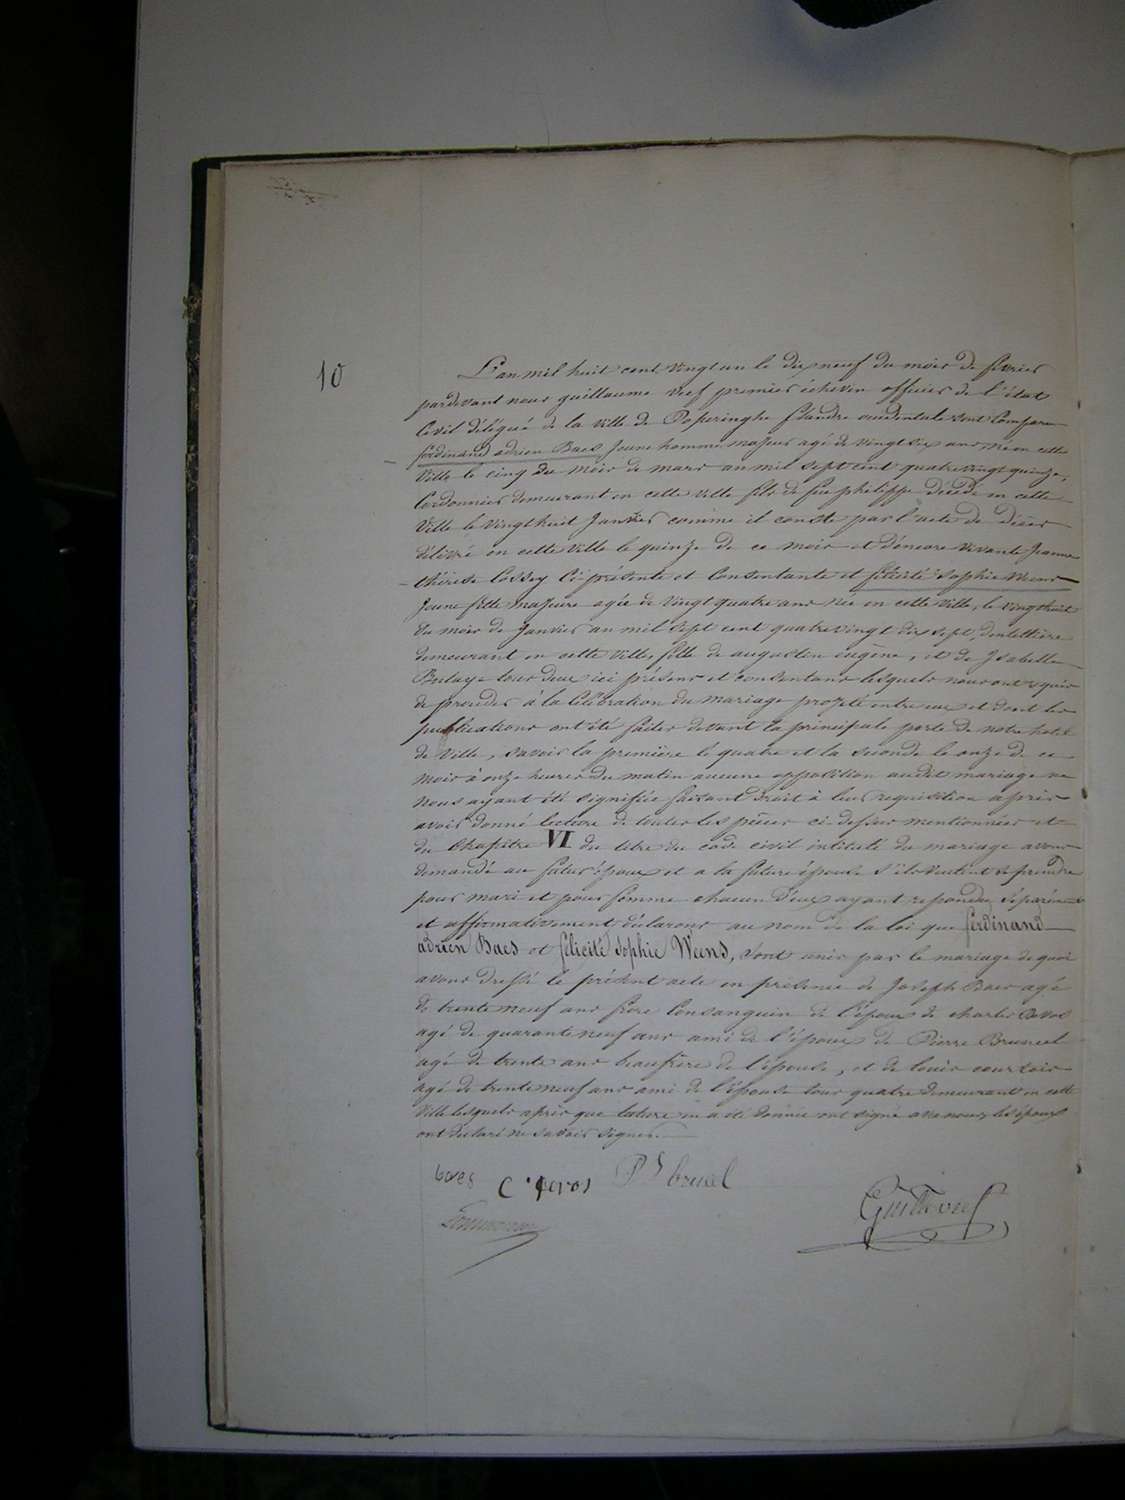 10
L'an mil huit cent vingt un le dix neuf du mois de fevrier
pardevant nous guillaume veef premier echevin officier de l'état
Civil délégué de la ville de Poperinghe flandre occidentale sont Comparu
ferdinand adrien Baes Jeune homme majeur agé de vingt six ans né en cette
Ville le cinq du mois de mars an mil sept cent quatre vingt quinze,
Cordonnier demeurant en cette ville fils de feu philippe décédé en cette
Ville le vingt huit Janvier comme il conste par l'acte de décès
délivré en cette ville le quinze de ce mois et d'encore vivante Jeanne
thérése Cossey Ci-présente et Consentante et félicité Sophie Weens
Jeune fille majeure agée de vingt quatre ans née en cette ville, le vingt huit
du mois de Janvier an mil sept cent quatre vingt dix sept, dentellière
demeurant en cette ville, fille de augustin eugène, et de Isabelle
tous deux ici présens et consentans lesquels nous ont requis
de proceder à la Célébration du mariage projeté entre eux et dont les
publications ont été faites devant la principale porte de notre hotel
de Ville, savoir la première le quatre et la seconde le onze de ce
mois à onze heures du matin aucune opposition audit mariage ne
Nous ayant été signifiée faisant droit à leur requisition après
avoir donné lecture de toutes les pièces ci-dessus mentionnées et
du Chapitre VI du titre du code civil intitulé du mariage avons
demandé au futur époux et a la future épouse s'ils veulent se prendre
pour mari et pour femme chacun d'eux ayant repondu séparément
et affirmativement déclarons au nom de la loi que ferdinand
adrien Baes et félicité Sophie Weens, sont unis par le mariage de quoi
avons dressé le présent acte en présence de Joseph Baes agé
de trente neuf ans frère Consanguin de l'époux de charles Devos
agé de quarante neuf ans ami de l'époux de Pierre Bruneel
agé de trente ans beaufrère de l'épouse, et de louis courtois
agé de trente neuf ans ami de l'épouse tous quatre demeurant en cette
Ville lesquels après que lecture en a été donnée ont signé avec nous, les époux
ont déclaré ne savoir signer.
baes C. devos P.s bruneel
Guill veef